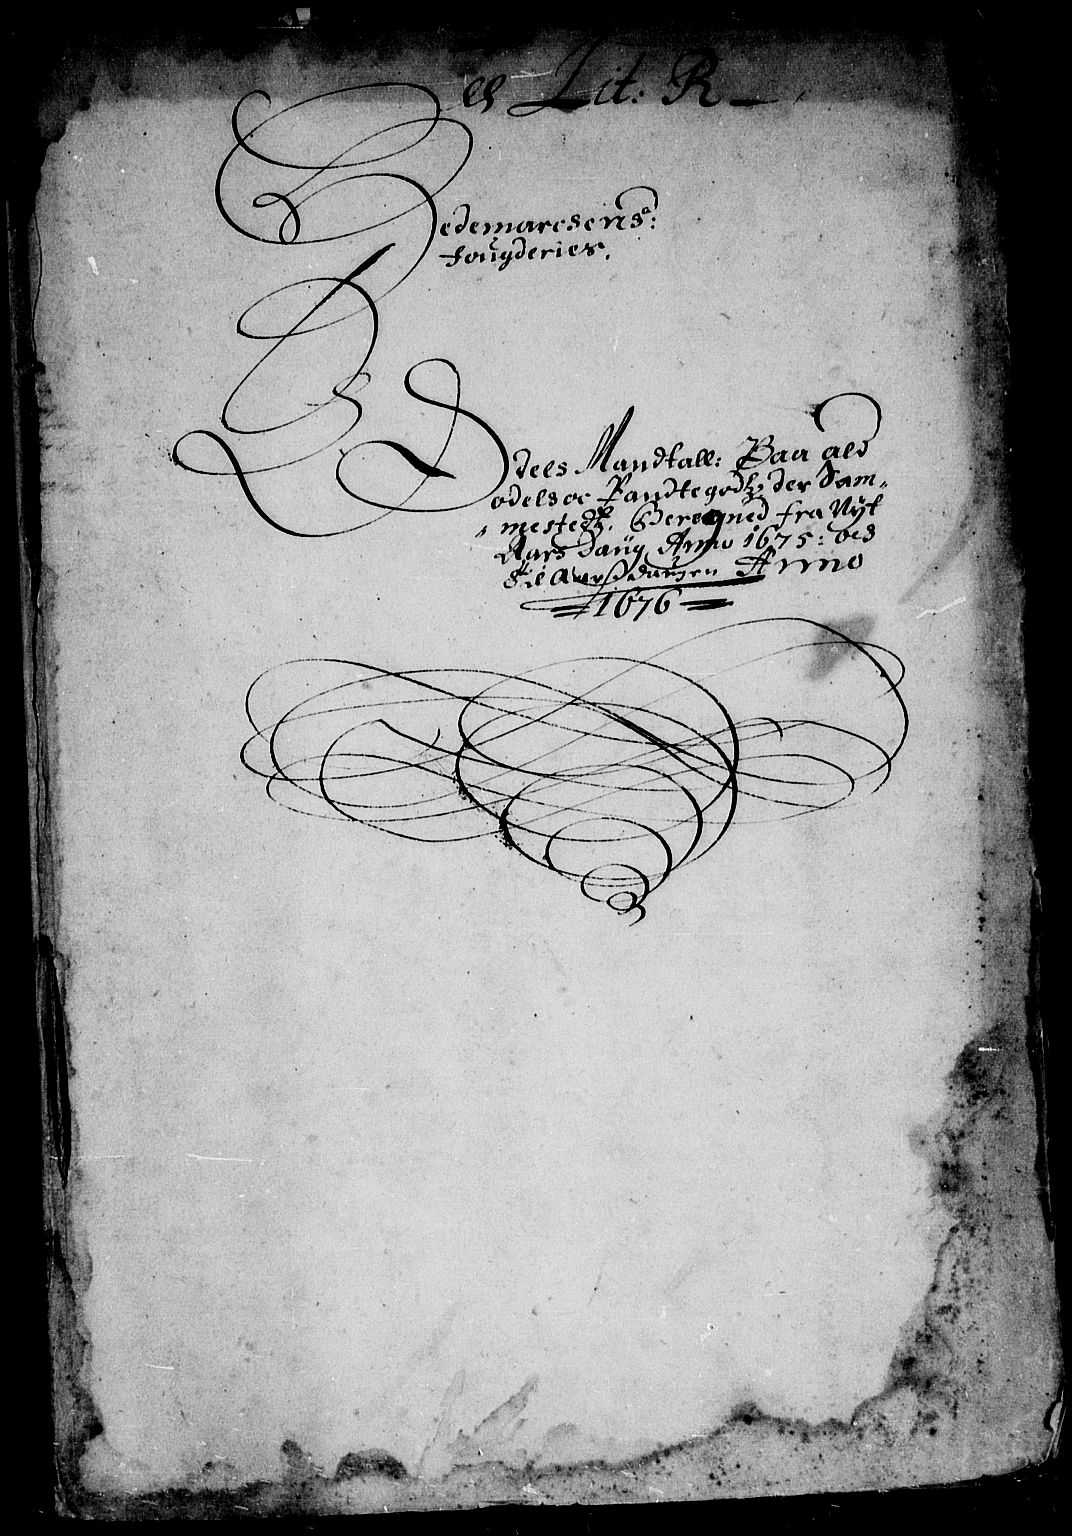 Lit: R
Hedemarcsens:
fougderies.
Odels Mandtall: Paa ald
odels oc Pandtegodtz der Sam-
mestedtz. Beregned fra Nyt
Aars Daug Anno 1675: oc
til Aarsdaugen Anno
1676